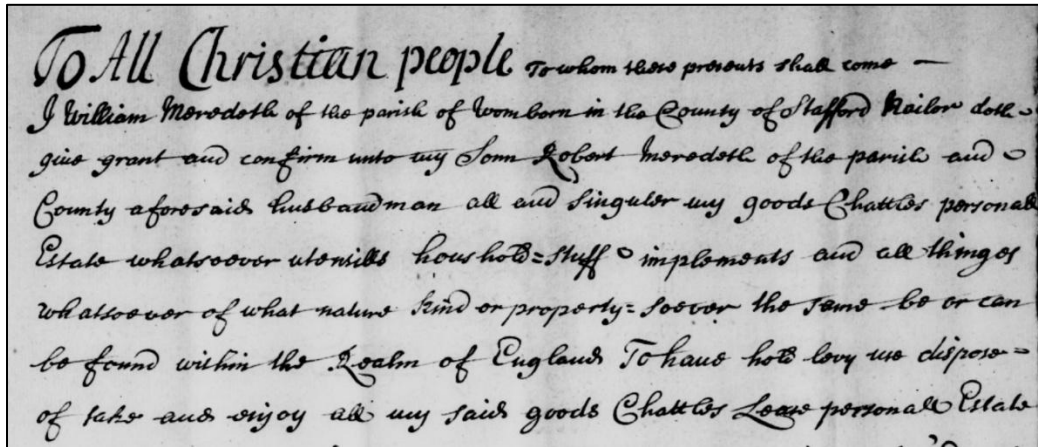 To All Christian people To whom these presents shall come —
I William Meredeth of the parish of Womborn in the County of Stafford Nailor doth
give grant and confirm unto my Sonn Robert Meredeth of the parish and
County aforesaid husbandman all and singuler my goods Chattles personall
Estate whatsoever utensills houshold=stuff implements and all thinges
whatsoever of what nature kind or property=soever the same be or can
be found within the Realm of England To have hold levy use dispose=
of take and enjoy all my said goods Chattles Lease personall Estate